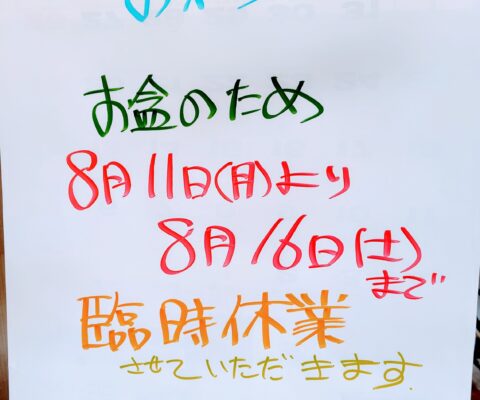 お盆のため
8月11日(月)より
8月16日(土)
まで
臨時休業
させていただきます.